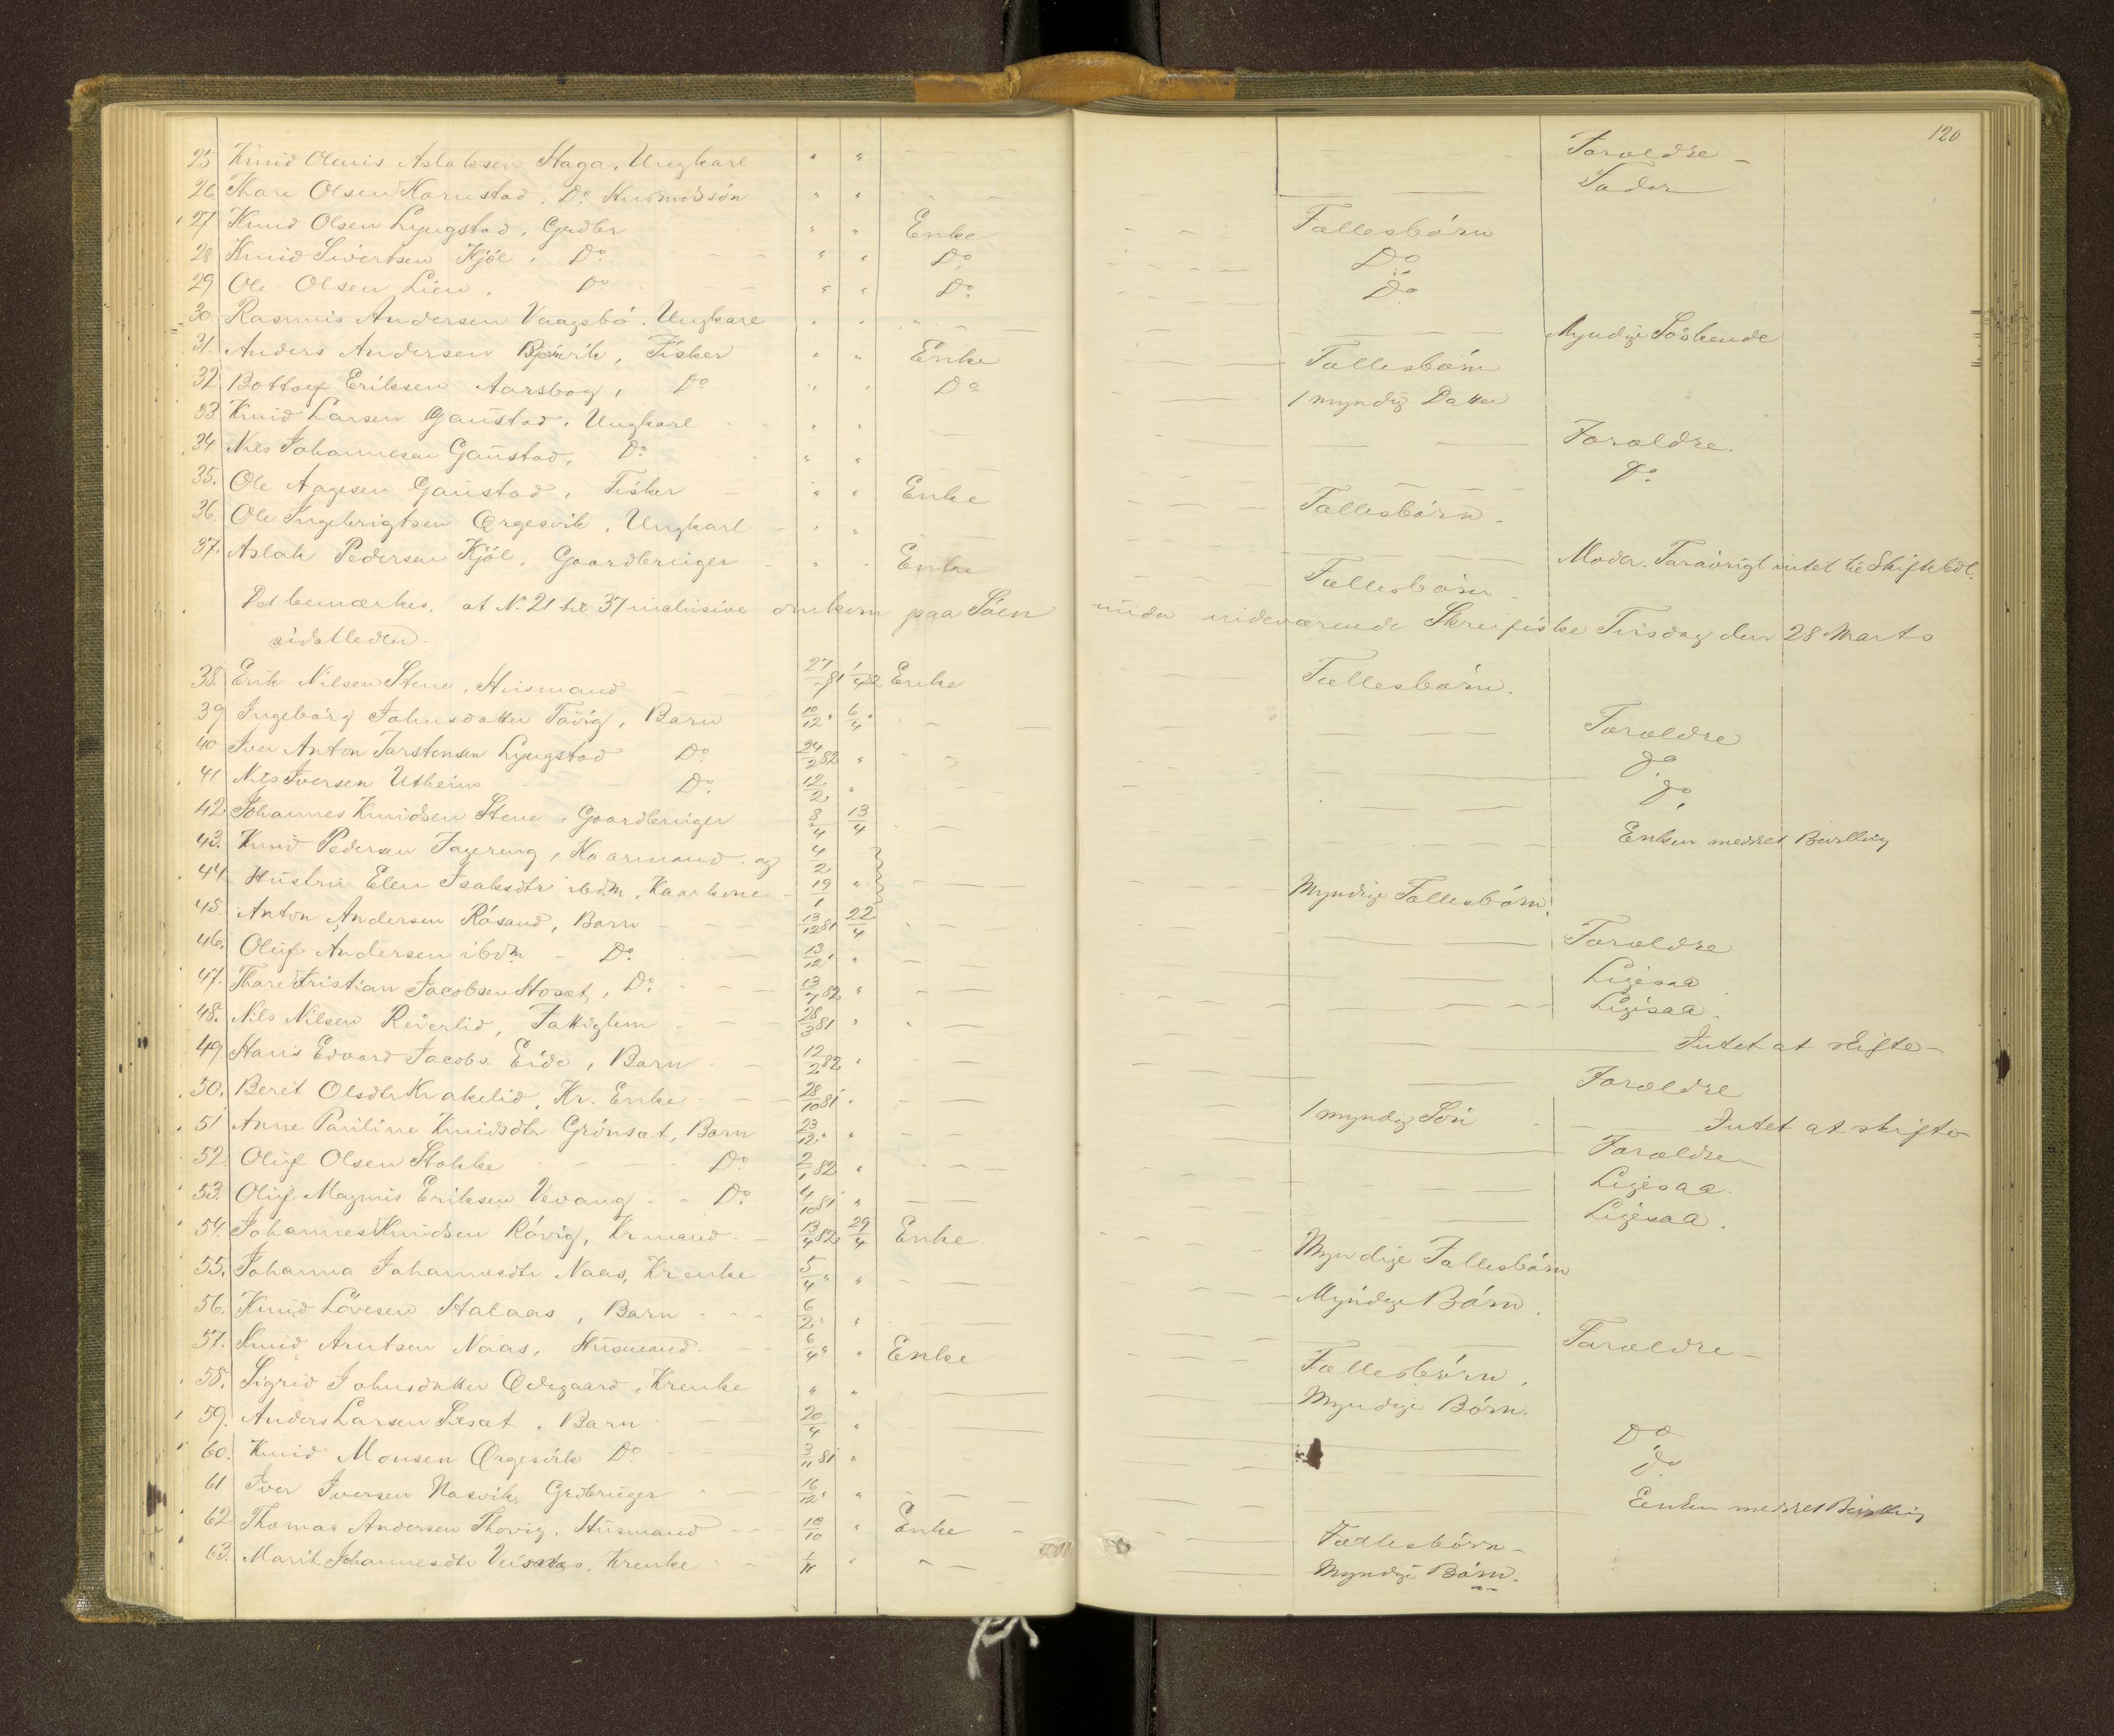 120
25 Knud Olaus Aslaksen Haga, Ungkarl " " Forældre
26 Thore Olsen Kornstad, Do Husmdssön " " Fader
27 Knud Olsen Lyngstad, Grdbr " " Enke Fællesbörn
28 Knud Sivertsen Kjöl, Do " " Do Do
29 Ole Olsen Lien, Do " " Do Do
30. Rasmus Andersen Vaagsbö, Ungkarl " " Myndige Söskende
31. Anders Andersen Bjørnvik, Fisker " " Enke Fællesbörn
32. Bottolf Eriksen Aarsbog, Do " " Do 1 myndig Datter
33. Knud Larsen Gaustad, Ungkarl " " Forældre.
34. Nils Johannesen Gaustad, Do " " Do
35. Ole Aagesen Gaustad, Fisker " " Enke Fællesbörn.
36. Ole Ingebrigtsen Ørgesvik, Ungkarl " " Moder. Forövrigt intet til Skiftebeh.
37. Aslak Pedersen Kjöl, Gaardbruger " " Enke Fællesbörn.
Det bemærkes, at No 21 til 37 inclusive omkom paa Söen under nideværende Skreifiske Tirsdag den 28 Marts
sidstleden.
38. Erik Nilsen Stene, Husmand 27/ 81 1/4 82 Enke Fællesbörn.
39 Ingebörg Johnsdatter Tövig, Barn 10/12 " 6/4 " Forældre
40 Iver Anton Torstensen Lyngstad Do 24/2 82 " Do
41 Nils Iversen Utheim Do 12/2 " Do
42. Johannes Knudsen Stene, Gaardbruger 8/4 13/4 Enken meddelt Bevilling
43. Knud Pedersen Fagereng, Kaarmand og 4/2
44 Hustru Elen Isaksdtr ibdm, Kaarkone 19/1 " Myndige Fællesbörn.
45. Anton Andersen Rösand, Barn 13/12 81 22/4 Forældre
46. Oluf Andersen ibdm Do 13/12 " " Ligesaa
47. Thore Kristian Jacobsen Hoset, Do 13/ 82 " Ligesaa.
48. Nils Nilsen Reverlid, Fattiglem 28/3 81 " Intet at skifte
49. Hans Edvard Jacobs. Eide, Barn 12/2 82 " Forældre
50. Beret Olsdtr Krakelid, Kr. Enke 28/10 81 " 1 myndig Sön Intet at skifte
51 Anne Pauline Knudsdtr Grönset, Barn 23/12 " " Forældre
52. Oluf Olsen Stokke Do 2/1 82 " Ligesaa.
53. Oluf Magnus Eriksen Vevang Do 4/10 81 " Ligesaa.
54. Johannes Knudsen Rövig, Krmand 13/4 82 29/4 Enke Myndige Fællesbörn
55. Johanna Johannesdtr Naas, Krenke 5/4 " " Myndige Börn.
56. Knud Lövesen Stalaas, Barn 6/2 " " Forældre
57. Knud Arntsen Naas, Husmand 6/4 " " Enke Fællesbörn.
58. Sigrid Johnsdatter Ødegaard, Krenke " " Myndige Börn.
59. Anders Larsen Siset, Barn 20/4 " Do
60. Knud Monsen Ørgesvik Do 3/11 81 " Do
61 Iver Iversen Nasvik, Grdbruger 16/12 " " Enken meddelt Bevilling
62 Thomas Andersen Thövig, Husmand 18/10 " Enke Fællesbörn
63. Marit Johannesdtr , Krenke 1/11 " Myndige Börn.